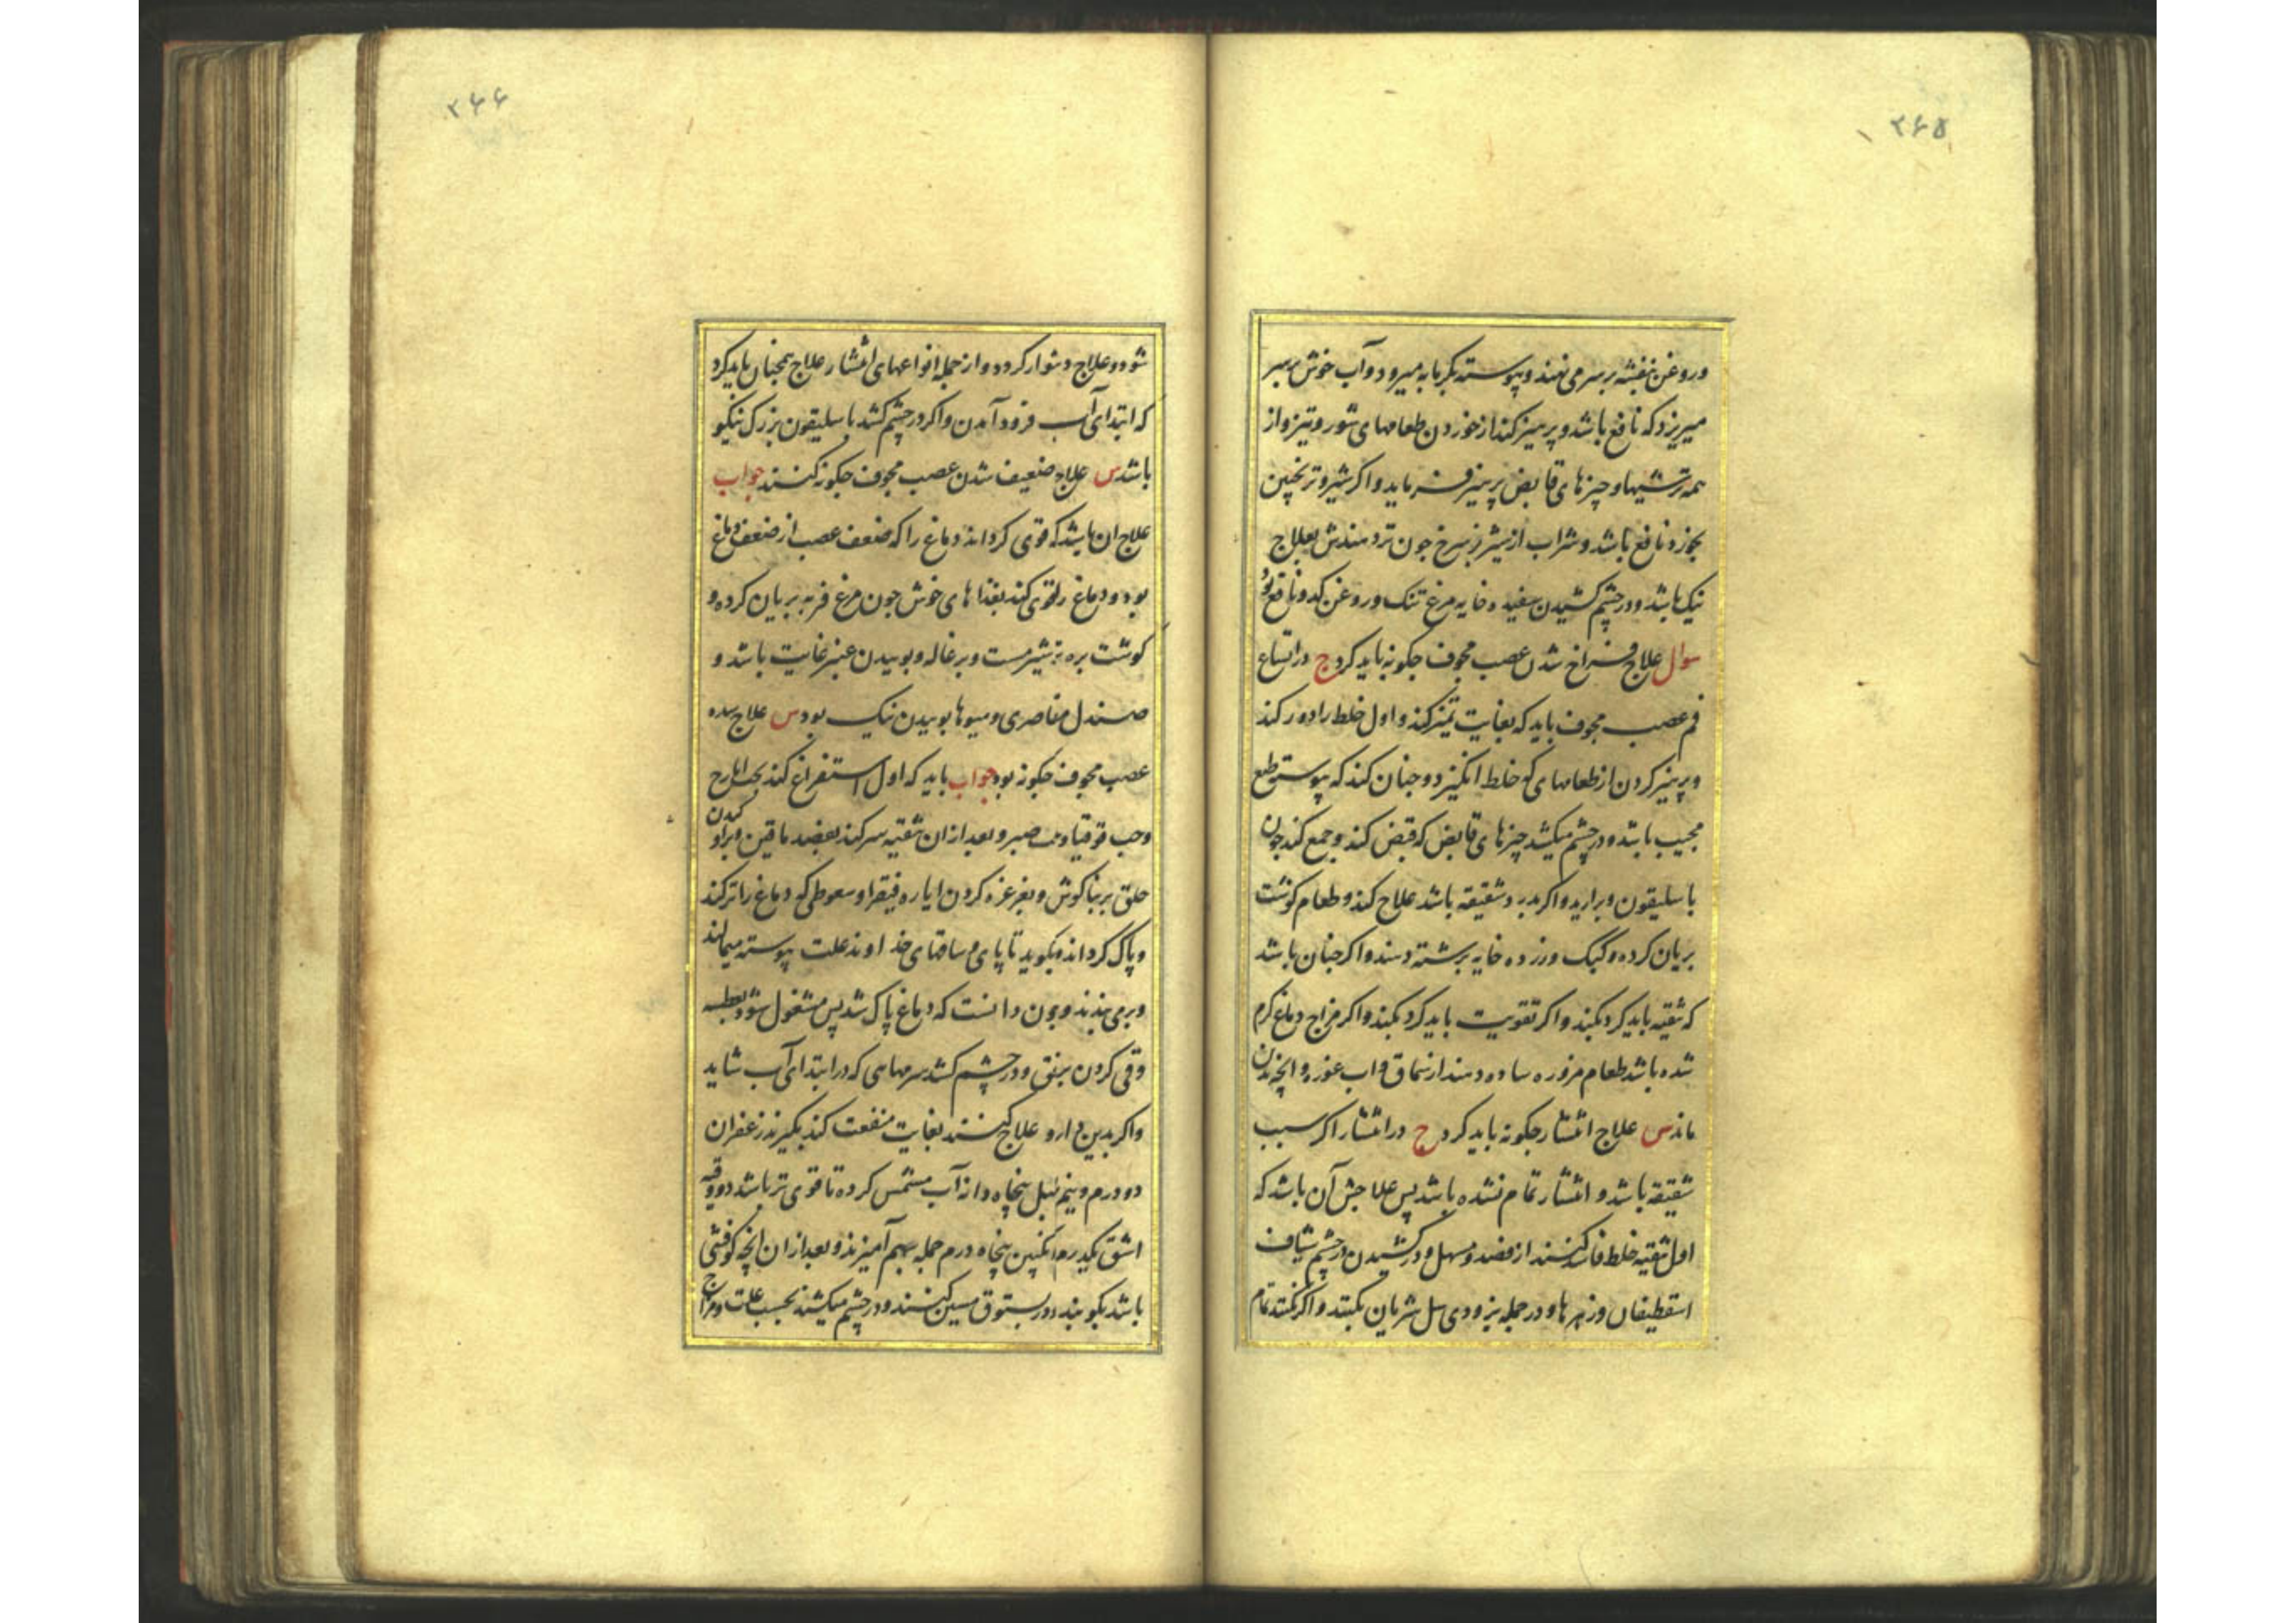 ۲۶۵
وروغن بنفشه بر سر می نهند و پیوسته بگرمابه میرود و آب خوش بر سر
میریزد که نافع باشد و پرهیز کند از خوردن طعامهای شور و تیز و از
همه ترشیها و چیزهای قابض پرهیز فرماید و اکر شیر و ترنجبین
بخورد نافع باشد و شراب از شیر زسرخ جون تر دهندش بعلاج
نیک باشد و در چشم کشیدن سفیده خایه مرغ تنک و روغن کدو نافع بود
سوال علاج فراخ شدن عصب مجوف جکونه باید کرد ج در اتساع
فم عصب مجوف باید که بغایت تمیز کند و اول خلط را دور کند
و پرهیز کردن از طعامهای که خلط انکیزد و جنان کند که پیوسته طبع
مجیب باشد و در چشم میکشد چیزهای قابض که قبض کند و جمع کند چون
باسلیقون و براید و اکر بدرد شقیقه باشد علاج کند و طعام کوشت
بریان کرده و کبک و زرده خایه برشته دهند و اکر جنان باشد
که تنقیه باید کرد بکنند و اکر تقویت باید کرد بکنند و اکر مزاج دماغ کرم
شده باشد طعام مزوره ساده دهند از سماق و اب غوره و انچه بدان
ماند س علاج انتشار جکونه باید کرد ج در انتشار اکر سبب
شقیقه باشد و انتشار تمام نشده باشد پس علاجش آن باشد که
اول تنقیه خلط فاسد کنند از فصد و مسهل و در کشیدن در چشم شیاف
اسقطیفان و زهرها و در جمله بزودی سل شریان بکنند و اکر نکنند تمام
۲۶۶
شود و علاج دشوار کردد و از جمله انواعهای انتشار علاج همچنان باید کرد
که ابتدای آب فرود آمدن و اکر در چشم کشد باسلیقون بزرک نیکو
باشد س علاج ضعیف شدن عصب مجوف جکونه کنند جواب
علاج ان باشد که قوی کرداند دماغ را که ضعف عصب از ضعف دماغ
بود و دماغ را قوی کند بغذاهای خوش جون مرغ فربه بریان کرده و
کوشت بره شیرمست و بزغاله و بوییدن عنبر غایت باشد و
صندل مقاصری و میوها بوییدن نیک بود س علاج سده
عصب مجوف جکونه بود جواب باید که اول استفراغ کند بحب ایارج
وحب قوقیا و صبر و بعد از ان تنقیه سر کند بفصد ماقین و براو کردن
حلق بر بناکوش و بغرغره کردن ایاره فیقرا و سعوطی که دماغ را تر کند
و پاک کرداند و بکوید تا پای و ساقهای خداوند علت پیوسته میمالند
و برمی بندند و چون دانست که دماغ پاک شد پس مشغول شود بعطسه
وقی کردن برفق و در چشم کشد سرمهایی که در ابتدای آب شاید
و اکر بدین دارو علاج کنند بغایت منفعت کند بکیرند زعفران
دو درم و نیم پلپل پنجاه دانه آب مشمس کرده تا قوی تر باشد دو وقیه
اشق یکدرم انکبین پنجاه درم جمله بهم آمیزند و بعد از ان انچه کوفتنی
باشد بکوبند و در بستوق مسین کنند و در چشم میکشند بحسب علت و مزاج